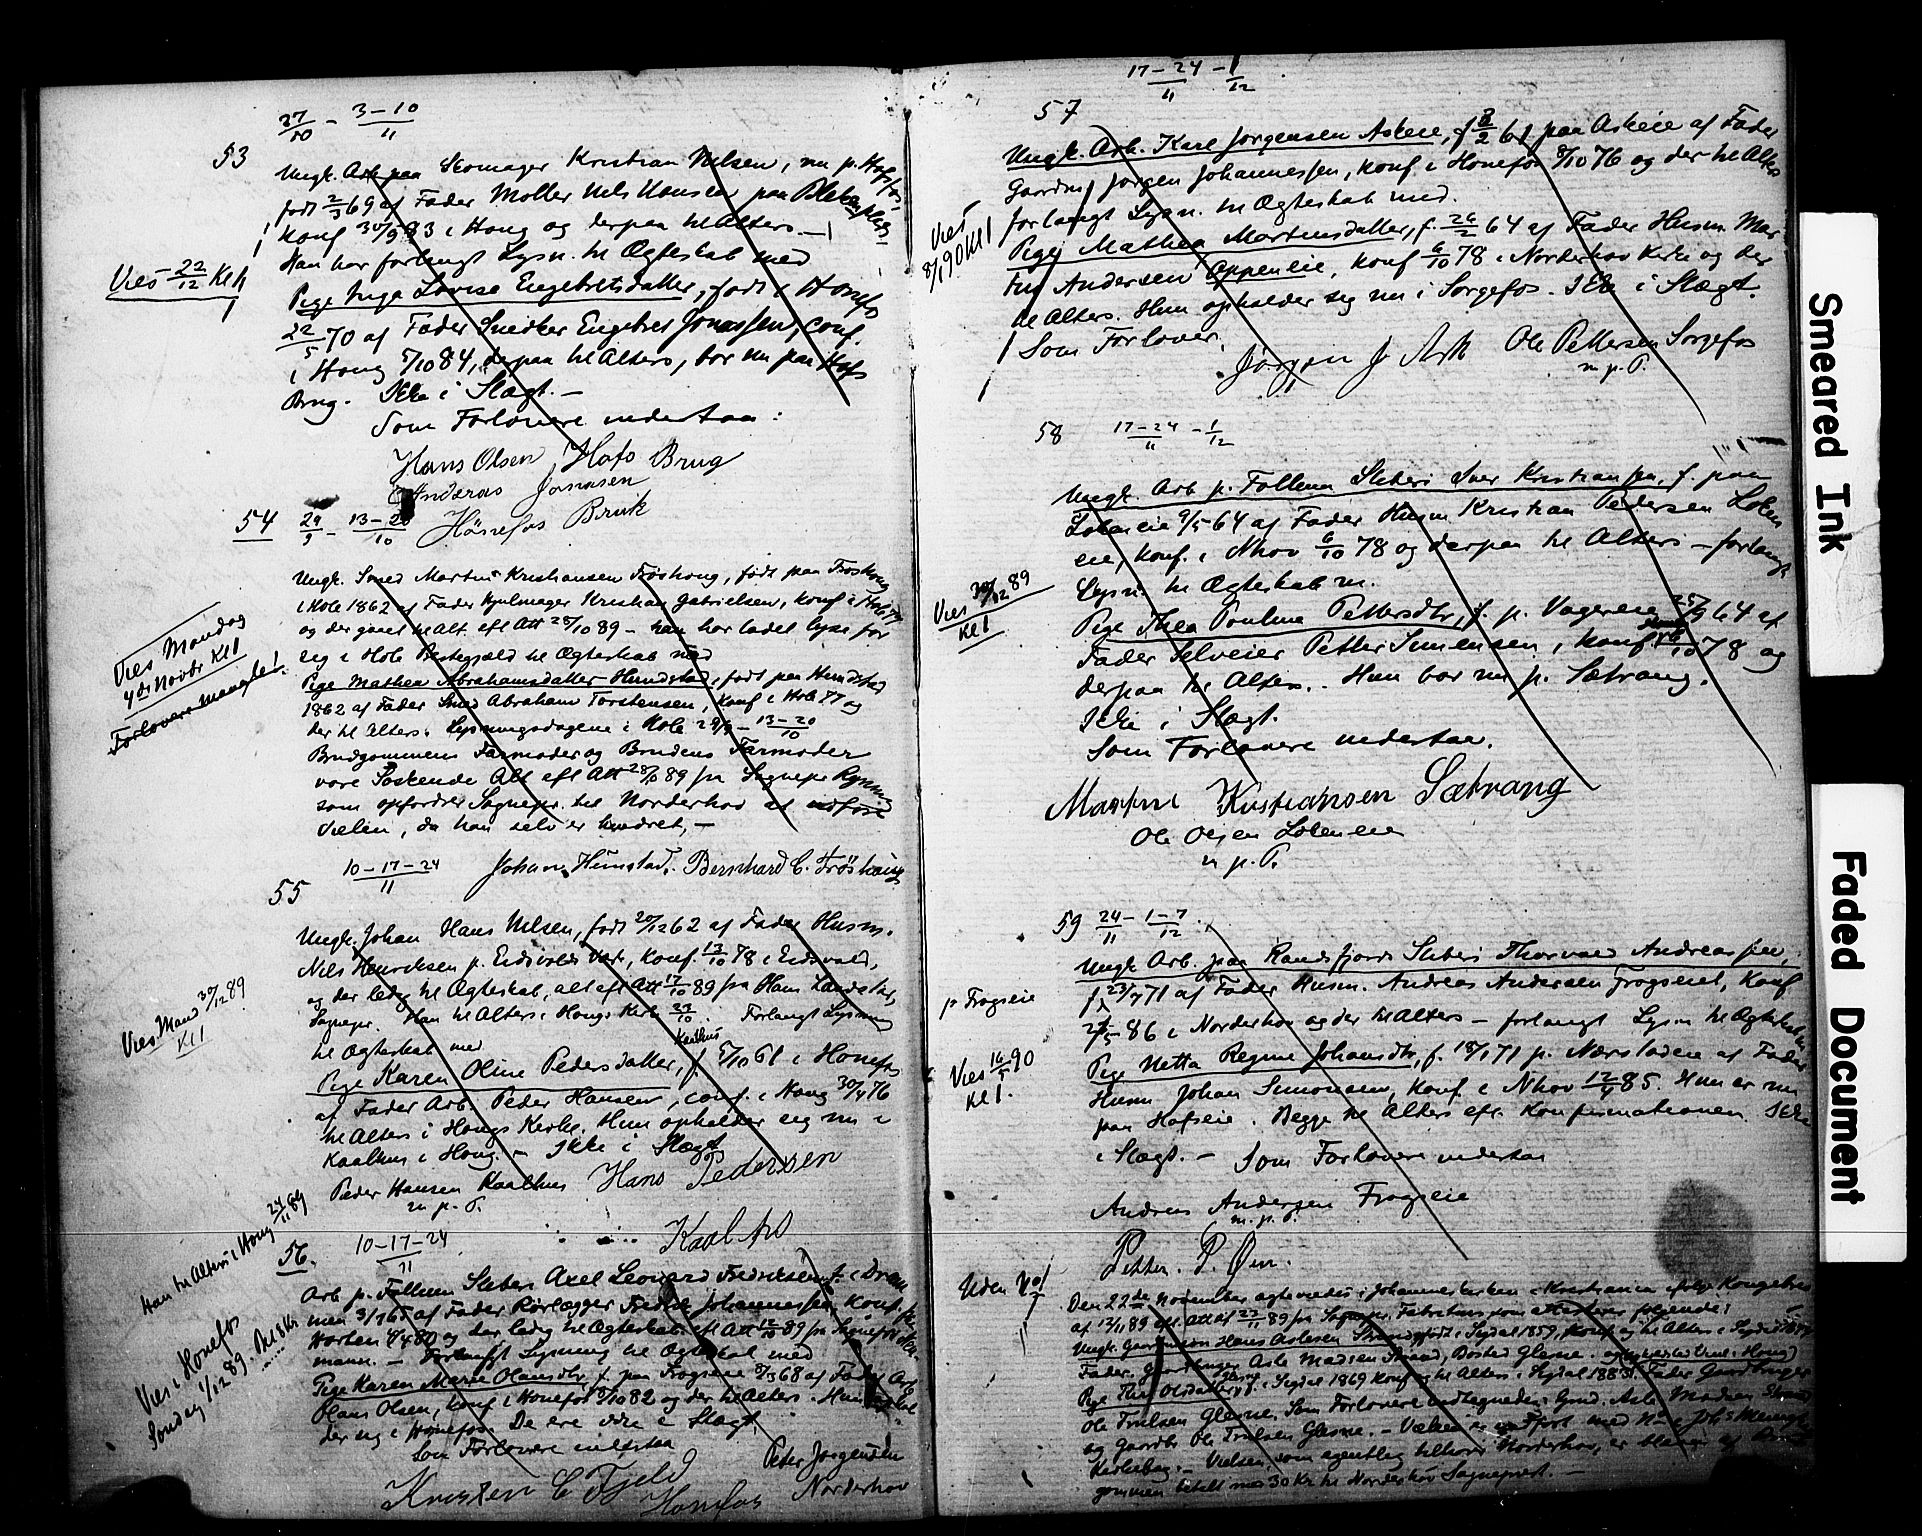 27/10 - 3-10/11
53
Ungk. Arb paa Skomager Kristian Nilsen, nu p. Hofsfos
født 2/3 69 af Fader Møller Nils Hansen paa Bleken
Konf 30/9 83 i Houg og derpaa til Alters
Han har forlangt Lysn. til Ægteskab med
Pige Inga Lovise Engebretsdatter, født i Honefos
22/5 70 af Fader Snedker Engebret Jonassen, conf.
i Houg 5/10 84, derpaa til Alters, bor nu paa Hofs
Brug. Ikke i Slægt. -
Som Forlovere undertaa:
Hans Olsen Hofs Brug
Andreas Jonasen
Hönefos Bruk
Vies 22/12 Kl 1
54 29/9 - 13-20/10
Ungk. Smed Martin Kristiansen Frøshoug, født paa Frøshoug
i Hole 1862 af Fader Hjulmager Kristian Gabrielsen, konf i Hole 77
og der gaaet til Alt. eft Att 28/10 89 - han har ladet lyse for
sig i Hole Prestegjæld til Ægteskab med
Pige Mathea Abrahamsdatter Hundstad, født paa Hundstad
1862 af Fader Smed Abraham Torstensen, Konf i Hole 77 og
der til Alters. Lysningsdagene i Hole 29/9 - 13-20/10
Brudgommens Farmoder og Brudens Farmoder
vare Søskende Alt eft Att 28/10 89 fra Sognepr
som opfordrer Sognepr. til Norderhov at udføre
Vielsen, da han selv er hindret, -
Johan Hunstad. Bernhard C. Fröshaug
Vies Mandag
4de Novbr Kl 1
Forlovere mangler!
10-17-24/11
55
Ungk. Johan Hans Nilsen, født 20/12 62 af Fader Husm.
Nils Henriksen p. Eidsvolds Værk, Konf. 13/10 78 i Eidsvold,
og der ledig til Ægteskab, alt eft Att 17/10 89 fra
Sognepr. Han til Alters i Hougs Kirke 27/10. Forlangt Lysning
til Ægteskab med
Kaalhus
Pige Karen Oline Pedersdatter, f 5/10 61 i Honefos
af Fader Arb. Peder Hansen, conf. i Houg 30/4 76
til Alters i Hougs Kirke. Hun opholder sig nu i
Kaalhus i Houg. - Ikke i Slægt
Peder Hansen Kaalhus Hans Pedersen
m. p. P.
Vies Mand 30/12 89
Kl 1
Han til Alters i Houg 24/11 89
56. 10-17-24/11
Arb p. Follum Sliberi Axel Leonard Fredriksen f. i Dram
men 3/7 65 af Fader Rørlægger Fredrik Johannessen, Konf.
Horten 4/4 80 og der ledig til Ægteskab eft Att 12/10 89 fra Sognepr
mann. - Forlangt Lysning til Ægteskab med
Pige Karen Marie Olausdtr, f. paa Frogseie 8/3 68 af Fader Arb
Olaus Olsen, konf i Honefos 8/10 82 og der til Alters. Hun
der sig i Honefos. De ere ikke i Slægt.
Som Forlovere undertaa
Peter Jorgensen
Norderhov
Kristen C Fjeld
Honefos
Vies i Honefos
Søndag 1/12 89.
17-24/11 - 1/12
57
Ungk. Arb. Karl Jørgensen Askeie, f 3/2 61 paa Askeie af Fader
Gaardm Jørgen Johannessen, konf i Honefos 8/10 76 og der til Alters
forlangt Lysn. til Ægteskab med.
Pige Mathea Martinsdatter, f. 26/2 64 af Fader Husm. Mar
tin Andersen Oppeneie, Konf 6/10 78 i Norderhov Kirke og der
til Alters. Hun opholder sig nu i Sorgefos. Ikke i Slægt.
Som Forlover.
Jørgen J Ask Ole Pettersen Sorgefos
m. p. P.
Vies
8/1 90 Kl 1
58 17-24/11 - 1/12
Ungk. Arb p. Follum Sliberi Iver Kristiansen, f. paa
Lobeneie 9/5 64 af Fader Husm Kristian Pedersen Loben
eie, Konf. i Nhov 6/10 78 og derpaa til Alters - forlangt
Lysn. til Ægteskab m.
Pige Thea Pouline Pettersdtr, f. p. Vagereie 25/9 64 af
Fader Selveier Petter Simensen, Konf 6/10 78 og
derpaa til Alters. Hun bor nu p. Sætrang.
Ikke i Slægt.
Som Forlovere undertaa.
Martin Kristiansen Sætrang
Ole Olsen Lobeneie
m. p. P.
Vies 30/12 89
Kl 1
59 24/11 - 1-7/12
Ungk Arb. paa Randsfjords Sliberi Thorvald Andreassen,
f. 23/7 71 af Fader Husm. Andreas Andersen Frogseiet, Konf
86 i Norderhov og der til Alters - forlangt Lysn til Ægteskab
Pige Netta Regine Johansdtr, f. 18/1 71 p. Nærstadeie af Fader
Husm Johan Simonsen, Konf. i Nhov 85. Hun er nu
paa Hofseie. Begge til Alters eft. Konfirmationen. Ikke
i Slægt. - Som Forlovere undertaa
Andreas Andersen Frogseie
m. p. P.
Petter. P. Øen.
p Frogseie
Vies 16/5 90
Kl 1.
Uden No!
Den 22de November ægteviedes i Johanneskirken i Kristiania ifølge Kongebrev
af 13/11 89 eft. Att af 22/11 89 fra Sognepr. Fabritius som attesterer følgende:
Ungk. Gaardmandssøn Hans Aslesen Strand, født i Sigdal 1859, Konf og til Alters i Sigdal
Fader. Gaardbruger Asle Madsen Strand, Bosted Glesne.
Pige Thea Olsdatter, f. i Sigdal 1869 Konf og til Alters i Sigdal 1883. Fader Gaardbruger
Ole Trulsen Glesne, Som Forlovere undtegnede: Gmd. Asle Madsen Strand
og Gaardbr Ole Trulsen Glesne. - Vielsen er indført med No i Joh. Menigh.
Kirkebog. - Vielsen, som egentlig tilhører Norderhov, er
gommen betalt med 30 Kr til Norderhov Sognepræst. -
Smeared Ink
Faded Document